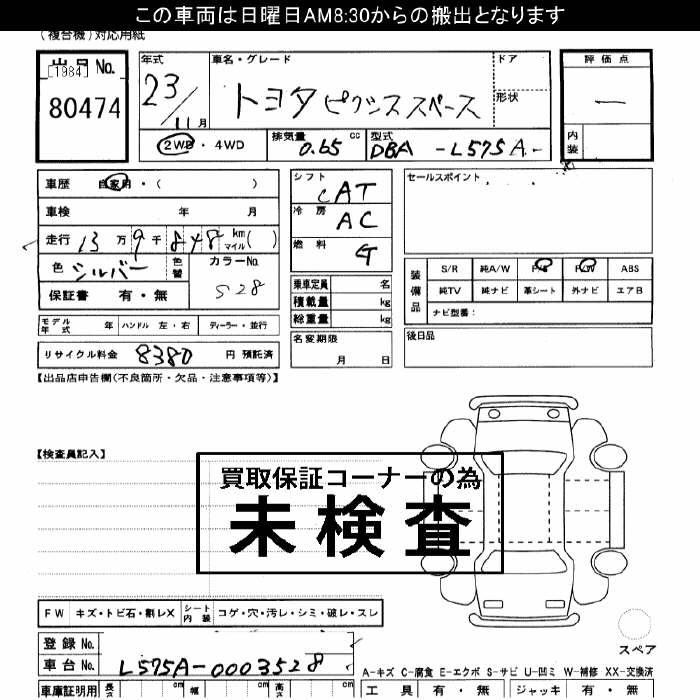 この車両は日曜日AM8:30からの搬出となります
(複合機)対応用紙
出品No.
[1984]
80474
年式
23/11月
車名・グレード
トヨタ ピクシススペース
ドア
形状
評価点
―
内装
2WD・4WD
排気量 0.65 cc
型式 DBA-L575A-
車歴 自家用・( )
車検 年 月
走行 13万9千848 km マイル( )
色 シルバー 色替
カラーNo. S28
保証書 有・無
シフト CAT
冷房 AC
燃料 G
乗車定員 名
積載量 kg
総重量 kg
名変期限 月 日
セールスポイント
装備品
S/R 純A/W P/S P/W ABS
純TV 純ナビ 革シート 外ナビ エアB
ナビ型番:
後日品
モデル年式 年 ハンドル 左・右 ディーラー・並行
リサイクル料金 8380 円 預託済
【出品店申告欄(不良箇所・欠品・注意事項等)】
【検査員記入】
買取保証コーナーの為
未検査
FW キズ・トビ石・割レX シート内装 コゲ・穴・汚レ・シミ・破レ・スレ
スペア
登録No.
車台No. L575A-0003528
A-キズ C-腐食 E-エクボ S-サビ U-凹ミ W-補修 XX-交換済
車庫証明用 長さ cm 幅 cm 高さ cm
工具 有・無 ジャッキ 有・無